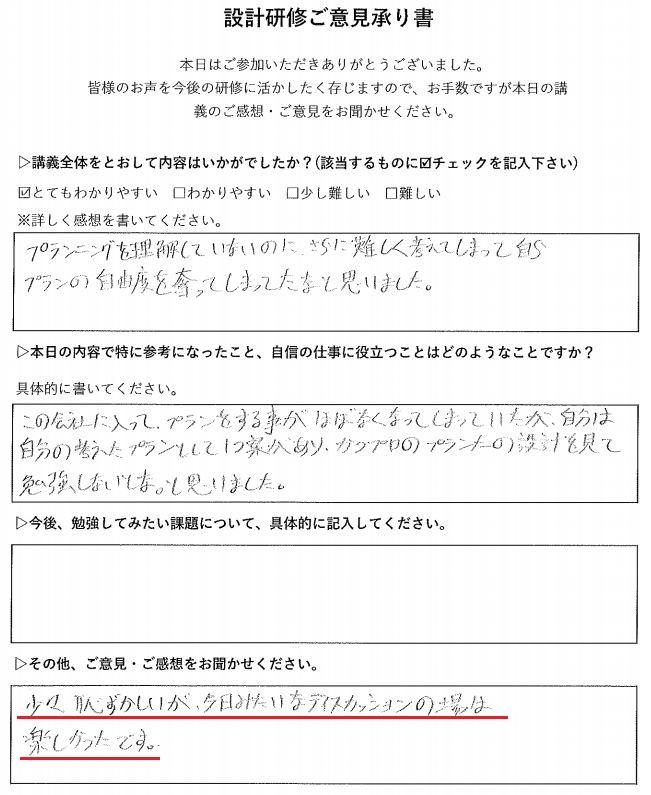 設計研修ご意見承り書
本日はご参加いただきありがとうございました。
皆様のお声を今後の研修に活かしたく存じますので、お手数ですが本日の講
義のご感想・ご意見をお聞かせください。
▷講義全体をとおして内容はいかがでしたか？(該当するものに☑チェックを記入下さい)
☑とてもわかりやすい □わかりやすい □少し難しい □難しい
※詳しく感想を書いてください。
プランニングを理解していないのに、さらに難しく考えてしまって自ら
プランの自由度を奪ってしまってたなと思いました。
▷本日の内容で特に参考になったこと、自信の仕事に役立つことはどのようなことですか？
具体的に書いてください。
この会社に入って、プランをする事がほぼなくなってしまっていたが、自分は
自分の考えたプランとして1つ案があり、プロのプランの設計を見て
勉強しないとな。と思いました。
▷今後、勉強してみたい課題について、具体的に記入してください。
▷その他、ご意見・ご感想をお聞かせください。
少々恥ずかしいが、今日みたいなディスカッションの場は
楽しかったです。